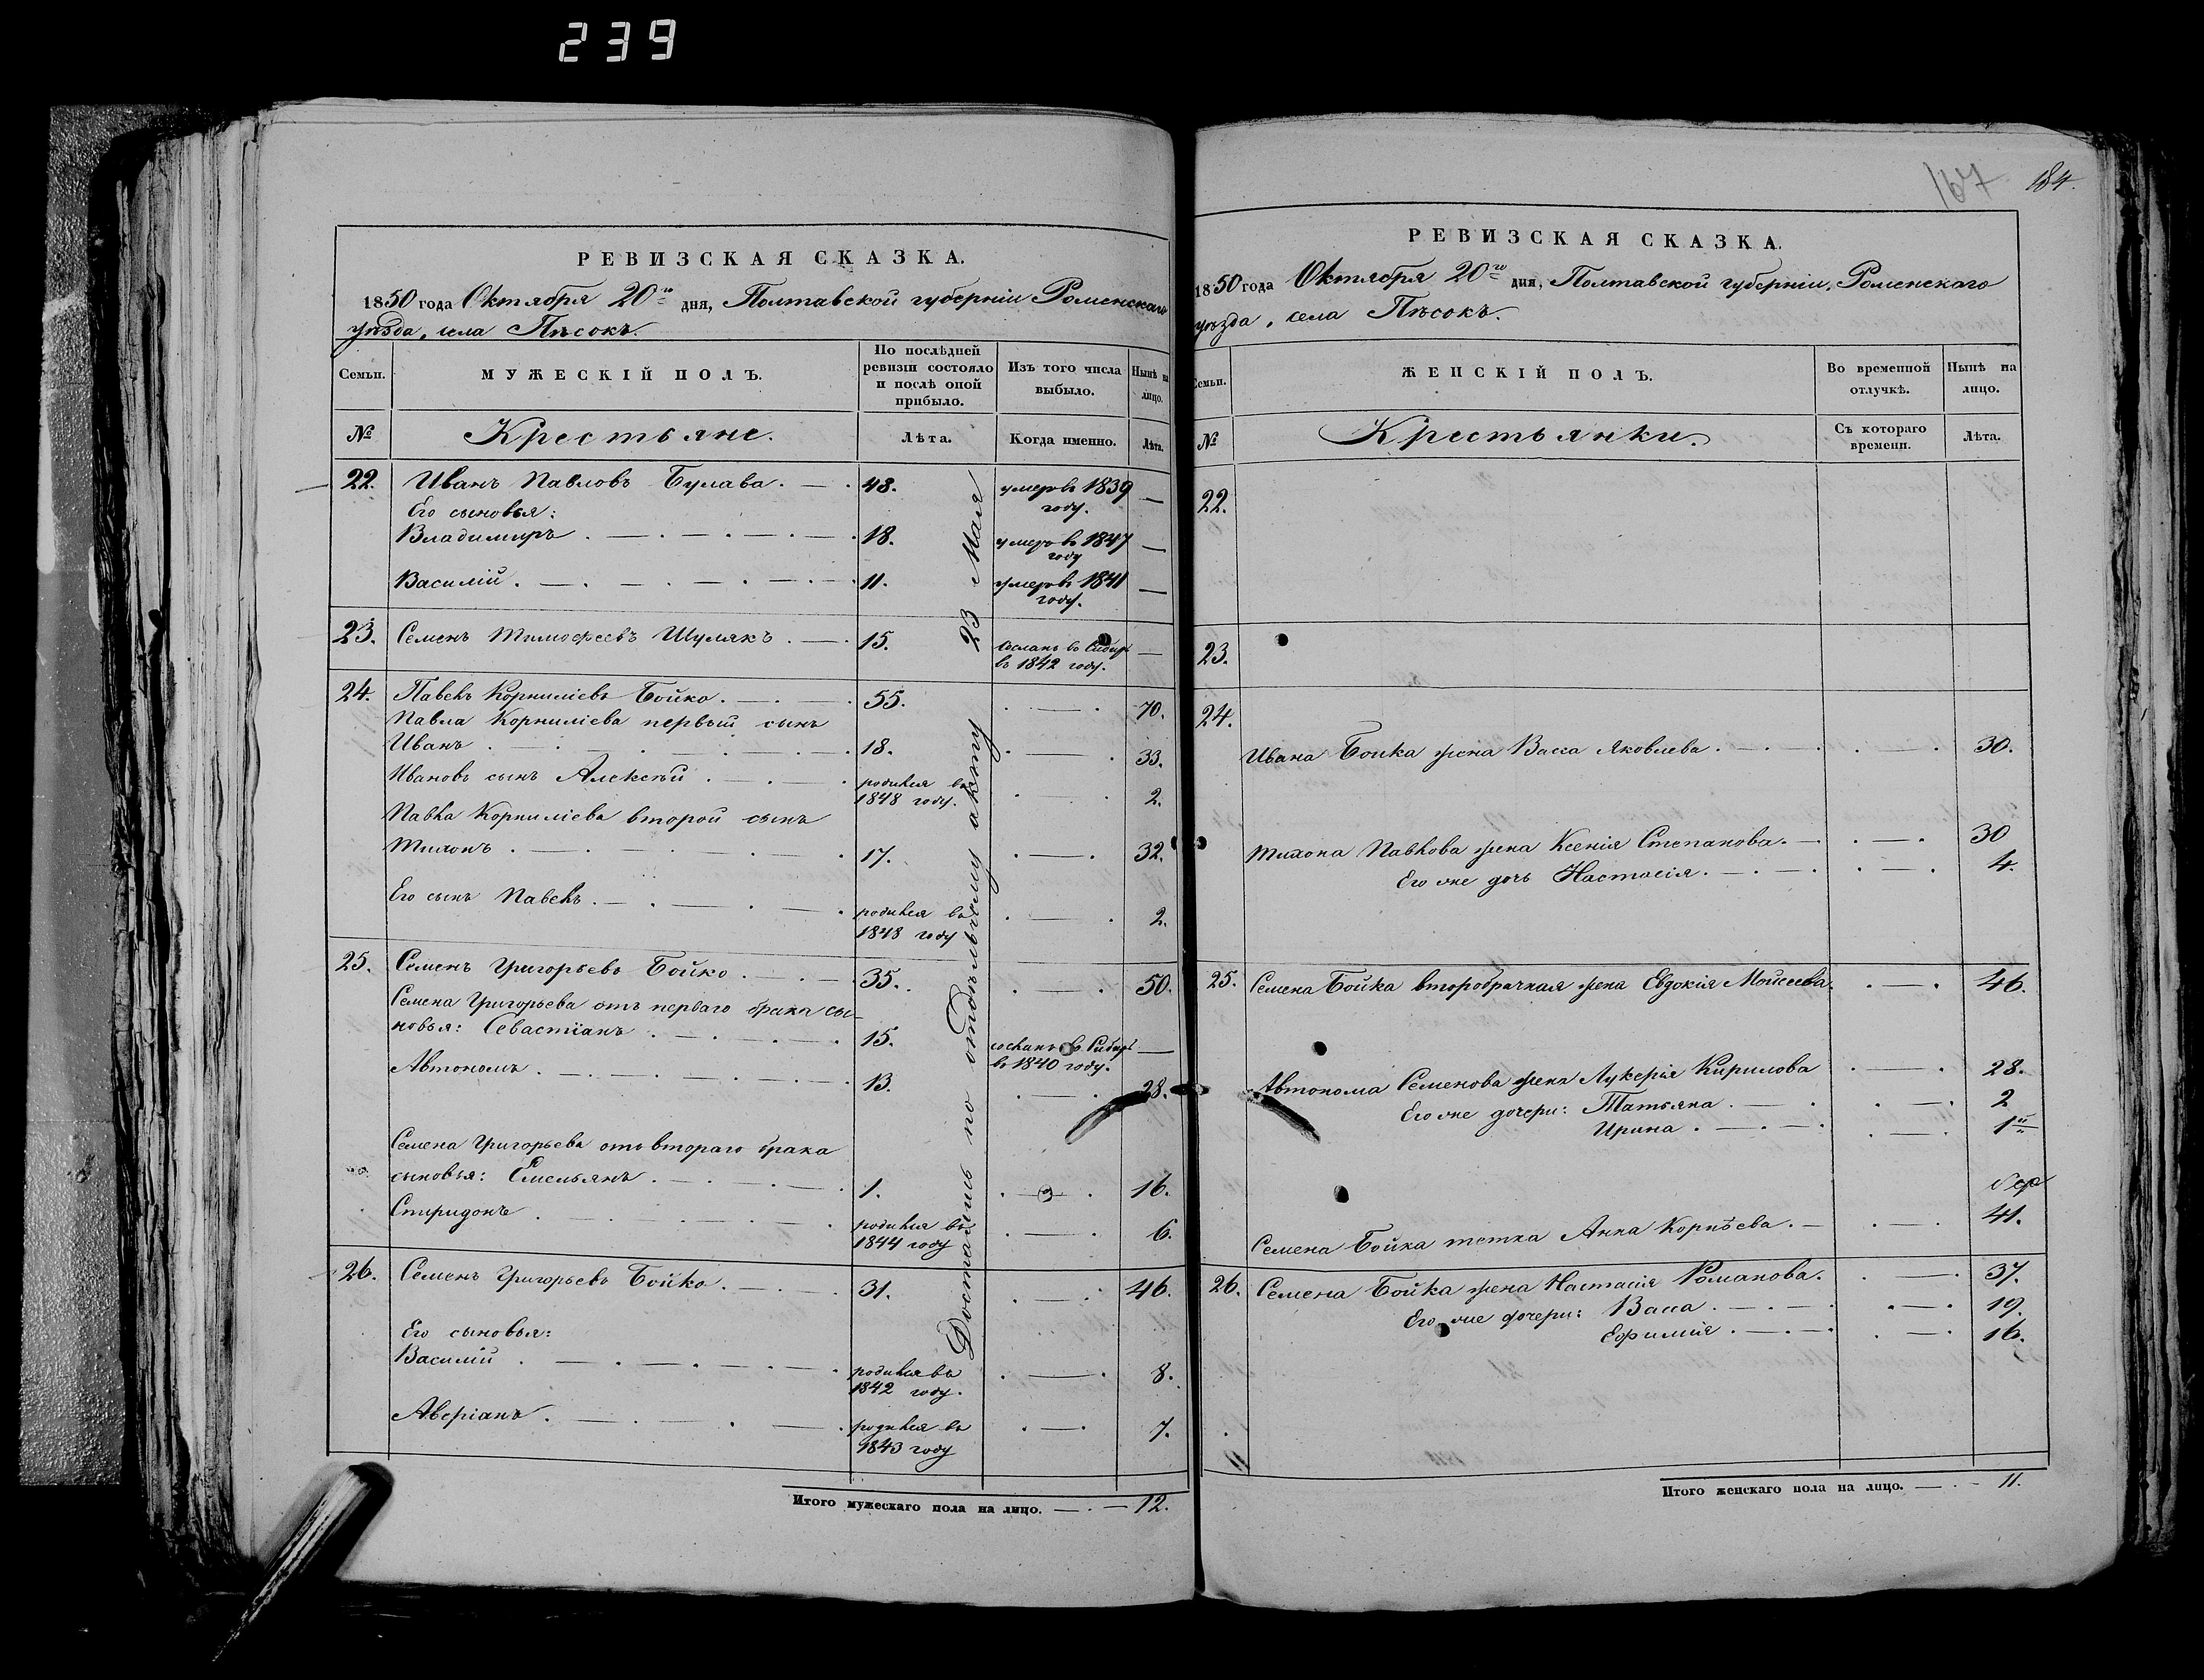 239
РЕВИЗСКАЯ СКАЗКА.
1850 года Октября 20го дня, Полтавской губерніи Роменскаго
уѣзда, села Пѣсокъ.
Семьи. МУЖЕСКІЙ ПОЛЪ. По послѣдней ревизіи состояло и послѣ оной прибыло. Изъ того числа выбыло. Нынѣ на лицо.
№ Крестьяне. Лѣта. Когда именно. Лѣта.
22. Иванъ Павловъ Булава. — . 48. умеръ въ 1839 году. —
Его сыновья:
Владимиръ . — . — . — . 18. умеръ въ 1847 году —
Василій . — . — . — . 11. умеръ въ 1841 году. —
23. Семенъ Тимофеевъ Шулякъ . — . 15. сосланъ въ Сибирь въ 1842 году. —
24. Павелъ Корниліевъ Бойко . — . 55. . — . 70.
Павла Корниліева первый сынъ
Иванъ . — . — . — . 18. . — . 33.
Ивановъ сынъ Алексѣй . — . — . родился въ 1848 году. . — . 2.
Павла Корниліева второй сынъ
Тихонъ . — . — . — . 17. . — . 32.
Его сынъ Павелъ . — . — . родился въ 1848 году . — . 2.
25. Семенъ Григорьевъ Бойко . — . 35. . — . 50.
Семена Григорьева отъ перваго брака сы-
новья: Севастіанъ . — . — . 15. сосланъ въ Сибирь въ 1840 году. —
Автономъ . — . — . — . 13. . — . 28.
Семена Григорьева отъ втораго брака
сыновья: Емельянъ . — . — . 1. . — . 16.
Спиридонъ . — . — . — . родился въ 1844 году . — . 6.
26. Семенъ Григорьевъ Бойко . — . 31. . — . 46.
Его сыновья:
Василій . — . — . — . родился въ 1842 году. . — . 8.
Аверіанъ . — . — . — . родился въ 1843 году . — . 7.
Итого мужескаго пола на лицо. — . — 12.
Достались по отдѣльному акту 23 Мая
167 184.
РЕВИЗСКАЯ СКАЗКА.
1850 года Октября 20го дня, Полтавской губерніи, Роменскаго
уѣзда, села Пѣсокъ.
Семьи. ЖЕНСКІЙ ПОЛЪ. Во временной отлучкѣ. Нынѣ на лицо.
№ Крестьянки. Съ котораго времени. Лѣта.
22.
23.
24.
Ивана Бойка жена Васса Яковлева . — . . — . 30.
Тихона Павлова жена Ксенія Степанова . — . — . 30
Его же дочь Настасія . — . — . . — . 4.
25. Семена Бойка второбрачная жена Евдокія Мойсеева. . — . 46.
Автонома Семенова жена Лукерія Кирилова . — . 28.
Его же дочери: Татьяна . — . . — . 2
Ирина . — . — . . — . 1й
Семена Бойка тетка Анна Корнѣева . — . — . 41.
26. Семена Бойка жена Настасія Романова. . — . 37.
Его же дочери: Васса . — . — . . — . 19.
Ефимія . — . — . . — . 16.
Итого женскаго пола на лицо. — . — 11.